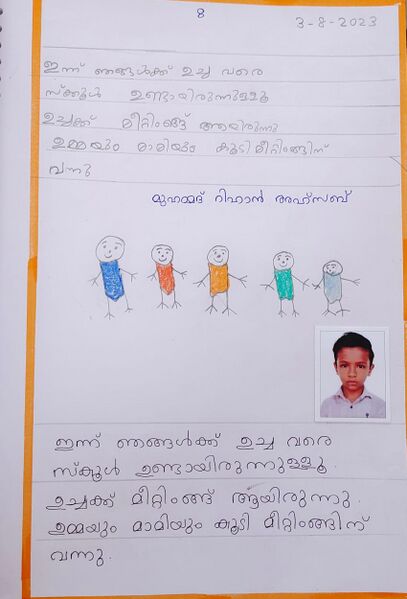 8
3-8-2023
ഇന്ന് ഞങ്ങൾക്ക് ഉച്ച വരെ
സ്ക്കൂൾ ഉണ്ടായിരുന്നുള്ളൂ
ഉച്ചക്ക് മീറ്റിംങ്ങ് ആയിരുന്നു
ഉമ്മയും മാമിയും കൂടി മീറ്റിംങ്ങിന്
വന്നു
മുഹമ്മദ് റിഹാൻ അഹ്സബ്
ഇന്ന് ഞങ്ങൾക്ക് ഉച്ച വരെ
സ്ക്കൂൾ ഉണ്ടായിരുന്നുള്ളൂ.
ഉച്ചക്ക് മീറ്റിംങ്ങ് ആയിരുന്നു.
ഉമ്മയും മാമിയും കൂടി മീറ്റിംങ്ങിന്
വന്നു.